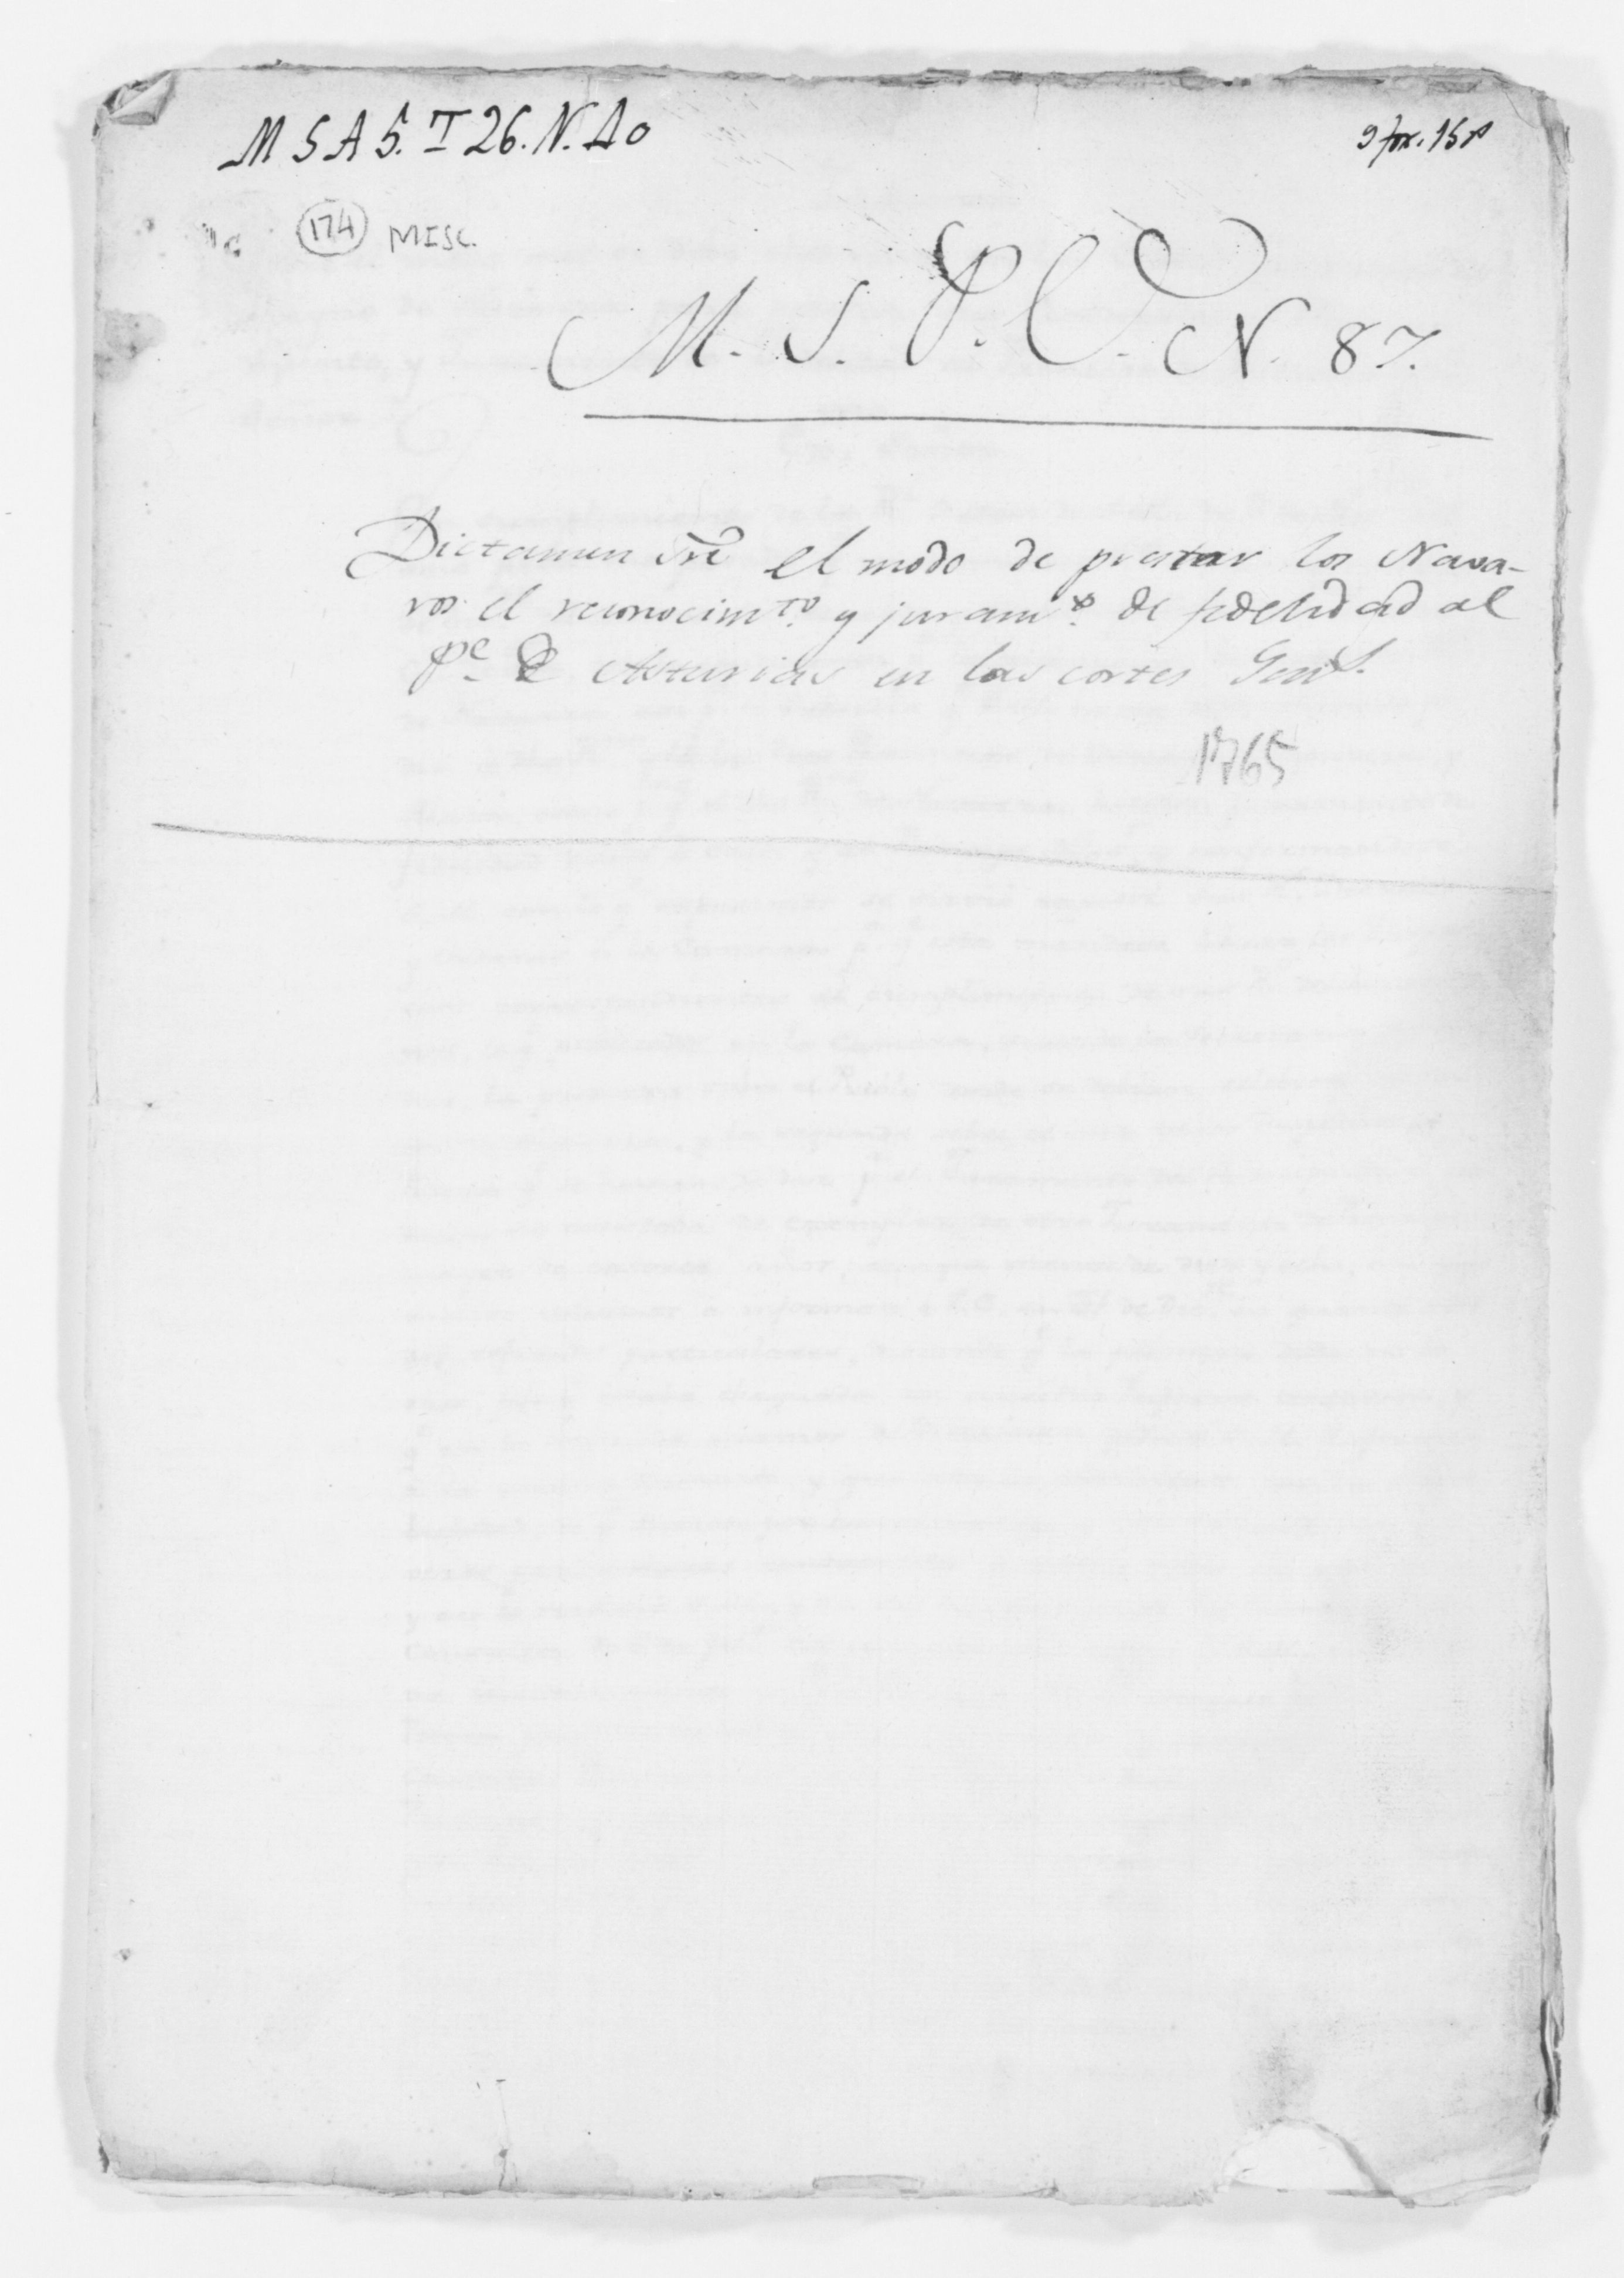 M S A 5. T 26. N. 40
(174) MISC.
M. S. P. C. N. 87.
Dictamen sre el modo de prestar los Nava-
ros el reconocimto. y juramto. de fidelidad al
Pe. de Asturias en las cortes Gens.
1765